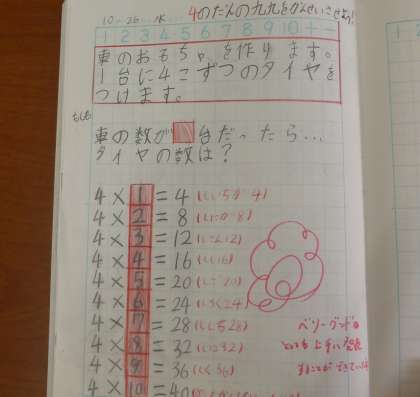 10-26 水 4のだんの九九をかんせいさせよう!
1 2 3 4 5 6 7 8 9 10 + -
車のおもちゃを作ります。
1台に4こずつのタイヤを
つけます。
もしも
車の数が 台だったら…
タイヤの数は?
4×1=4 (しいちが4)
4×2=8 (しにが8)
4×3=12 (しさん12)
4×4=16 (しし16)
4×5=20 (しご20)
4×6=24 (しろく24)
4×7=28 (ししち28)
4×8=32 (しは32)
4×9=36 (しく36)
4×10=40
ベリーグッド。
とても上手に